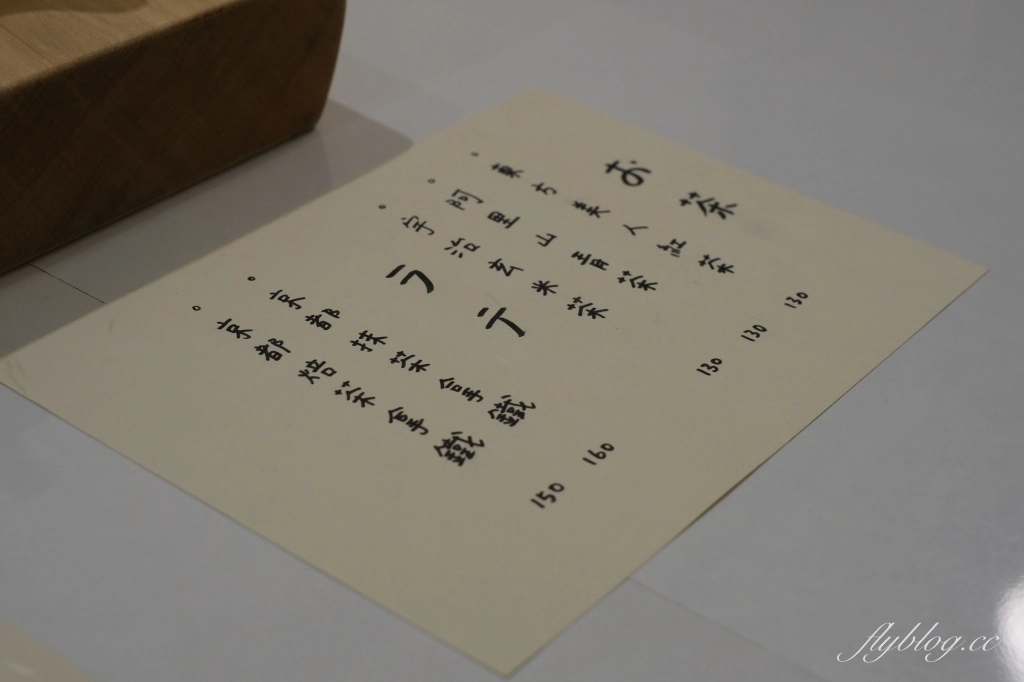 お茶
。東方美人紅茶 130
。阿里山青茶 130
。宇治玄米茶 130
ラテ
。京都抹茶拿鐵 160
。京都焙茶拿鐵 150
flyblog.cc